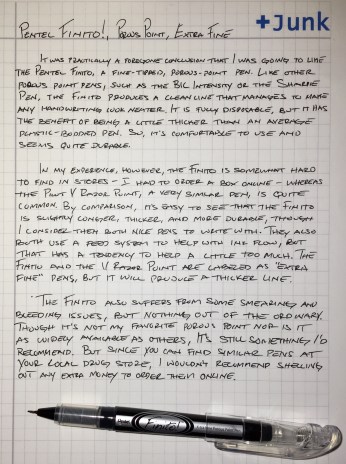 +Junk
Pentel Finito!, Porous Point, Extra Fine
It was practically a foregone conclusion that I was going to like
the Pentel Finito, a fine-tipped, porous-point pen. Like other
porous point pens, such as the BIC Intensity or the Sharpie
Pen, the Finito produces a clean line that manages to make
any handwriting look neater. It is fully disposable, but it has
the benefit of being a little thicker than an average
plastic-bodied pen. So, it's comfortable to use and
seems quite durable.
In my experience, however, the Finito is somewhat hard
to find in stores - I had to order a box online - whereas
the Pilot V Razor Point, a very similar pen, is quite
common. By comparison, it's easy to see that the Finito
is slightly longer, thicker, and more durable, though
I consider them both nice pens to write with. They also
both use a feed system to help with ink flow, but
that has a tendency to help a little too much. The
Finito and the V Razor Point are labeled as "extra
fine" pens, but it will produce a thicker line.
The Finito also suffers from some smearing and
bleeding issues, but nothing out of the ordinary.
Though it's not my favorite porous point nor is it
as widely available as others, it's still something I'd
recommend. But since you can find similar pens at
your local drug store, I wouldn't recommend shelling
out any extra money to order them online.
Finito!